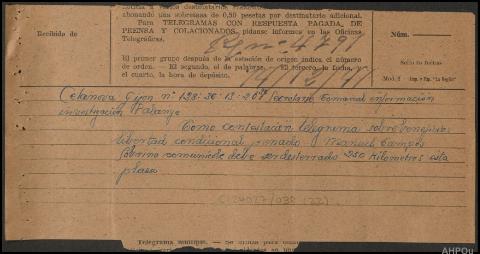 abonando una sobretasa de 0,50 pesetas por destinatario adicional.
Para TELEGRAMAS CON RESPUESTA PAGADA, DE
PRENSA Y COLACIONADOS, pídanse informes en las Oficinas
Telegráficas.
Recibido de
Núm.
El primer grupo después de la estación de origen indica el número
de orden.- El segundo, el de palabras. El tercero, la fecha, y
el cuarto, la hora de depósito.
Sello de fechas
Celanova Gijon nº 128-30-13- Secretario Comarcal información
investigación Falange
Como contestación telegrama sobre
libertad condicional penado Manuel Campos
comunicole debe ser desterrado 250 kilometros esta
plaza
C-24027/038 (22)
Telegrama múltiple.
AHPOu